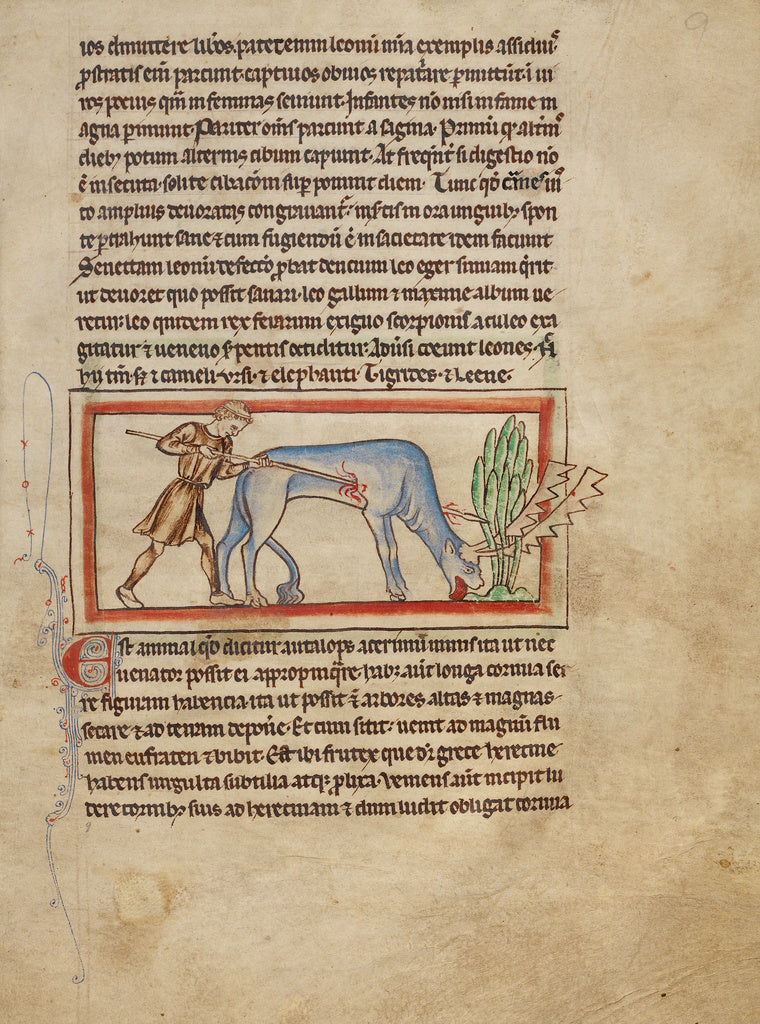 ros dimittere libros. patet enim leonu̅ mi̅a exemplis assiduis.
p̱stratis eni̅ parcunt. captiuos obuios repat'are ꝑmittunt. i̅ ui
ros pocius qm̅ in feminas seuiunt. Infantes no̅ nisi in fame m
agna ꝑimunt. Pariter om̅s parcunt a sagina. Primu̅ qꝫ alt'nis
dieb; potum alternis cibum capiunt. At freque̅t' si digestio no̅
e̅ insecuta. solite cibacio̅i suꝑponunt diem. Tunc qd̅ carnes iu̅
to amplius deuoratas congrauant'. ins'tis in ora unguib; spon
te ꝑtrahunt sane. ⁊ cum fugiendu̅ e̅ in sacietate idem faciunt
Senectam leonu̅ defectio ꝓbat dencium leo eger simiam q̅rit
ut deuoret quo possit sanari. leo gallum ⁊ maxime album ue
retur. leo quidem rex ferarum exiguo scorpionis aculeo exa
gitatur ⁊ ueneno s'pentis occiditur. Adu̅si coeunt leones.
hij tm̅. s; ⁊ cameli. ursi. ⁊ elephanti. Tigrides. ⁊ leene.
Est animal qd̅ dicitur autalops acerimu̅ nimis ita ut nec
uenator possit ei appropinq̅re. hab; aut̅ longa cornua ser
re figuram habencia. ita ut possit e̅ arbores altas ⁊ magnas
secare ⁊ ad terram depone̅. Et cum sitit. uenit ad magnu̅ flu
men eufraten ⁊ bibit. Est ibi frutex que dr̅ grece herecine
habens uirgulta subtilia atq; ꝓlixa. Veniens aut̅ incipit lu
dere cornib; suis ad herecinam ⁊ dum ludit obligat cornua
9